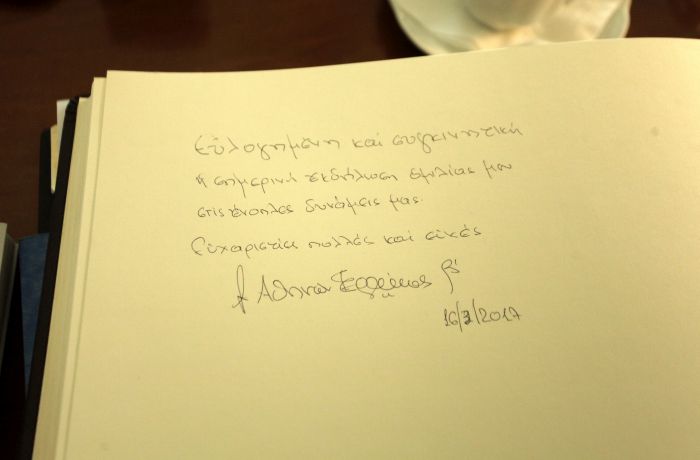 Εὐλογημένη καί συγκινητική
ἡ σημερινή ἐκδήλωση ὁμιλίας μου
στίς ἔνοπλες δυνάμεις μας.
Εὐχαριστίες πολλές καί εὐχές
† Ὁ Ἀθηνῶν Ἱερώνυμος Β΄
16/3/2017